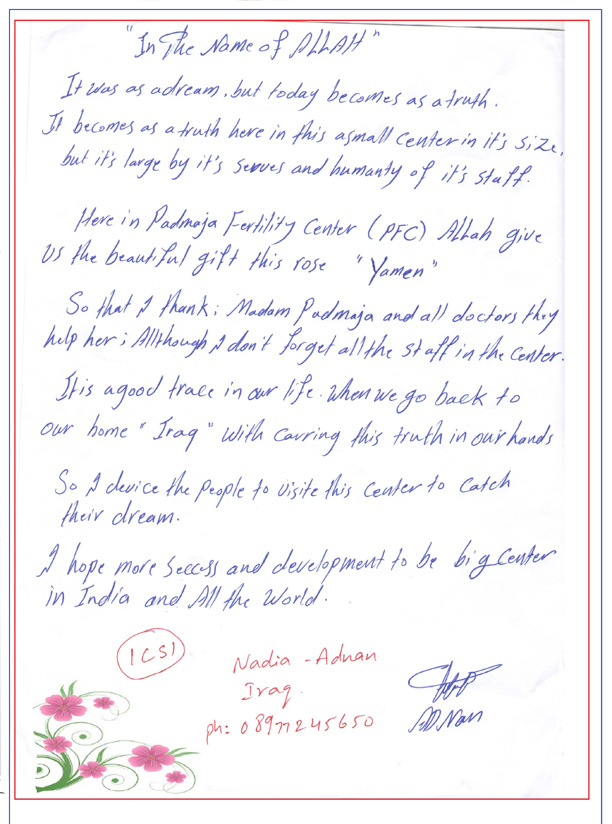 "In The Name of ALLAH"
It was as adream, but today becomes as a truth.
It becomes as a truth here in this asmall Center in it's size,
but it's large by it's serves and humanty of it's staff.
Here in Padmaja Fertility Center (PFC) Allah give
us the beautiful gift this rose "Yamen"
So that I thank; Madam Padmaja and all doctors they
help her; Allthough I don't forget all the staff in the Center.
It is agood trace in our life. When we go back to
our home "Iraq" with carring this truth in our hands
So I device the people to visite this Center to Catch
their dream.
I hope more Seccess and development to be big Center
in India and All the World.
ICSI
Nadia - Adnan
Iraq.
ph: 08977245650
ADNan